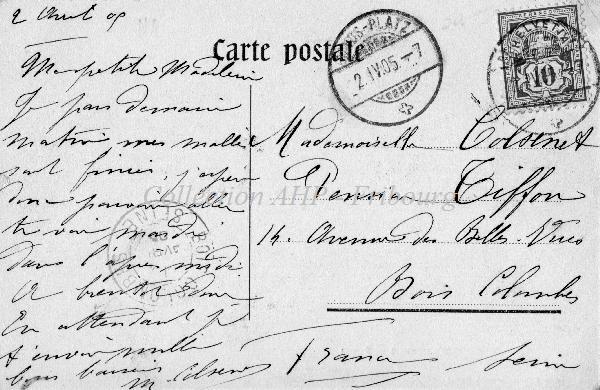 2 Avril 05
Carte postale
Ma petite Madeleine
Je pars demain
matin mes malles
sont finies, j'espère
donc pouvoir aller
te voir mardi
dans l'après midi
A bientôt donc
En attendant je
t'envoie mille
bons baisers
M. Colsenet
Mademoiselle Colsenet
Pension Tiffon
14. Avenue des Belles-Vues
Bois Colombes
France Seine
PLATZ
2.IV.05.-7
HELVETIA
10
Collection AHP - Fribourg